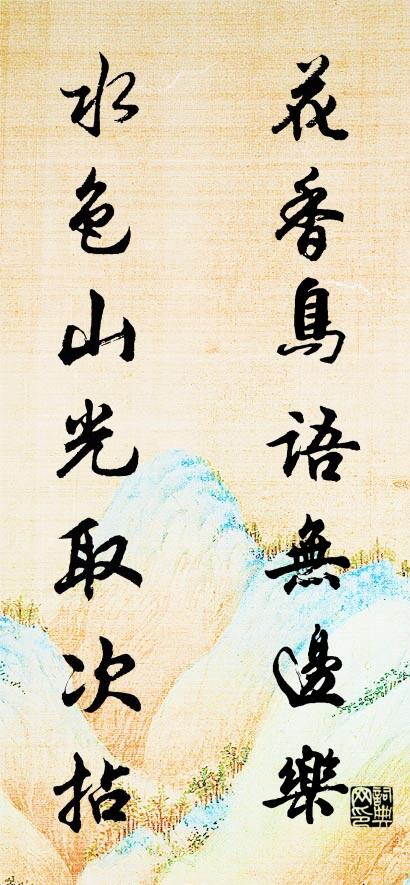 花香鳥語無邊樂
水色山光取次拈
詞典網